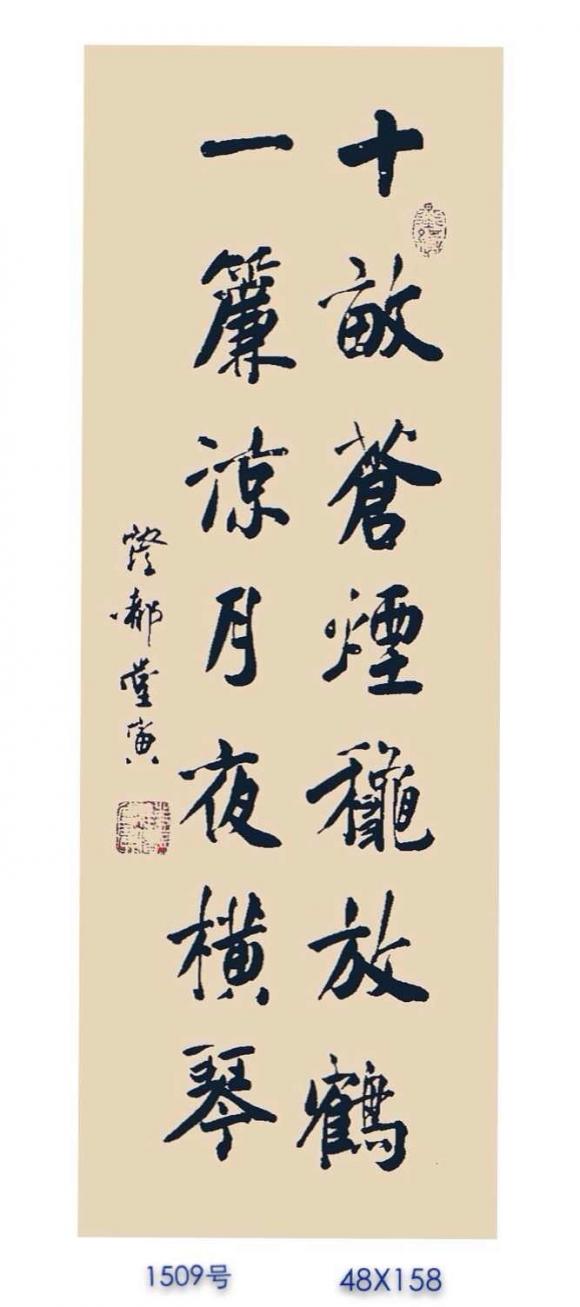 十畝蒼煙龝放鶴
一簾涼月夜橫琴
堂寅
1509号
48X158